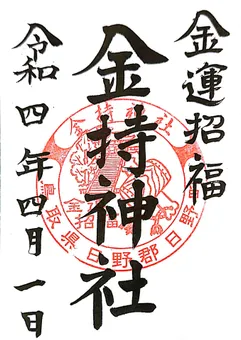 金運招福
金持神社
令和四年四月一日
金持神社
金招福
鳥取県日野郡日野